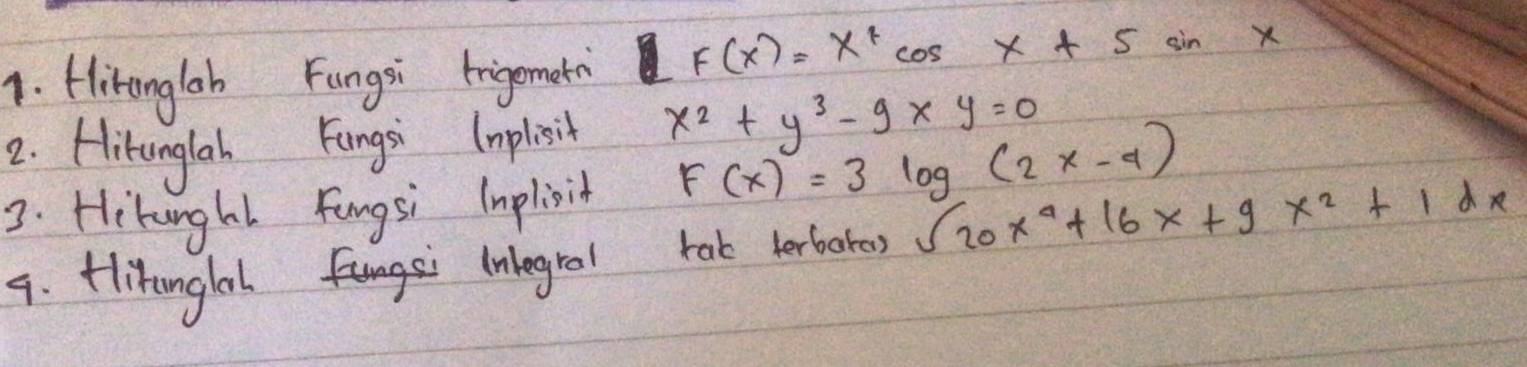 1. Hitunglah Fungsi trigometri F(x) = x⁴ cos x + 5 sin x
2. Hitunglah Fungsi Inplisit x2 + y³ - 9 x y = 0
3. Hitunglah fungsi Inplisit F(x) = 3 log (2x-4)
4. Hitunglah fungsi Integral tak terbatas √20x⁴ + 16x + 9 x² + 1 dx